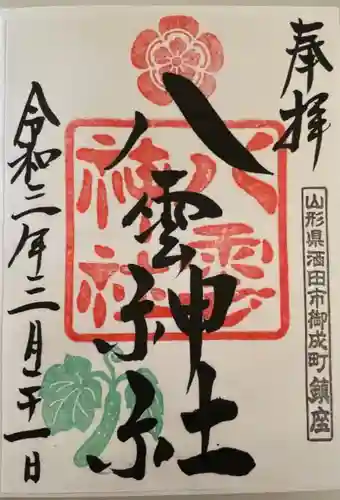 奉拝
山形県酒田市御成町鎮座
八雲神社
八雲神社
令和三年二月廿一日